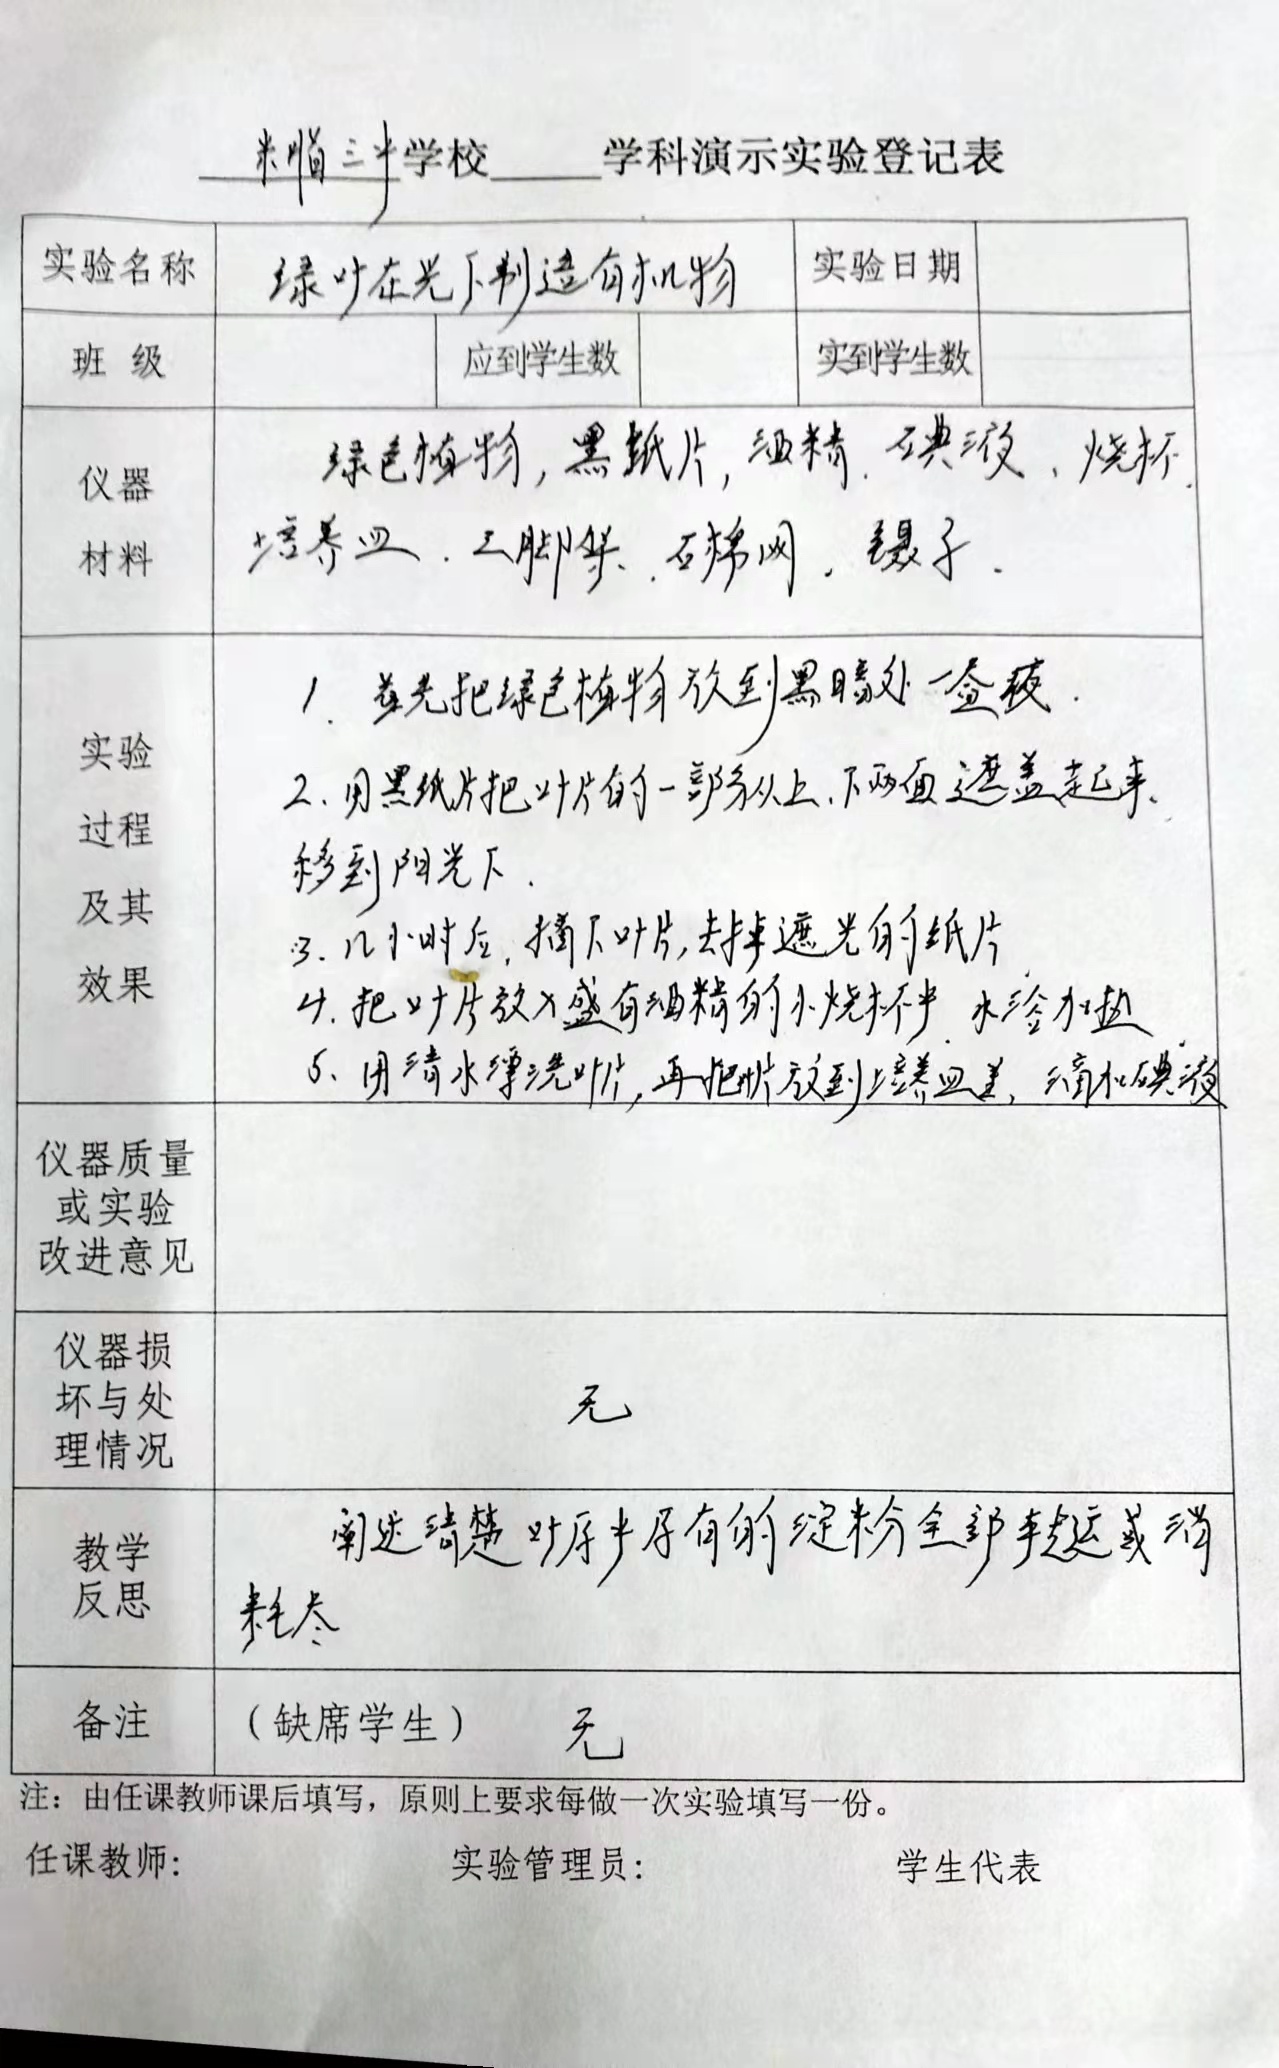 米脂三中学校______学科演示实验登记表
实验名称 绿叶在光下制造有机物 实验日期
班 级 应到学生数 实到学生数
仪器
材料
绿色植物,黑纸片,酒精、碘液、烧杯、
培养皿、三脚架、石棉网、镊子.
实验
过程
及其
效果
1. 首先把绿色植物放到黑暗处一昼夜.
2.用黑纸片把叶片的一部分从上、下两面遮盖起来、
移到阳光下.
3.几小时后,摘下叶片,去掉遮光的纸片
4.把叶片放入盛有酒精的小烧杯中.水浴加热
5.用清水漂洗叶片,再把叶片放到培养皿里,滴加碘液
仪器质量
或实验
改进意见
仪器损
坏与处
理情况
无
教学
反思
阐述清楚叶片中存有的淀粉全部转运或消
耗尽
备注 (缺席学生) 无
注:由任课教师课后填写,原则上要求每做一次实验填写一份。
任课教师: 实验管理员: 学生代表